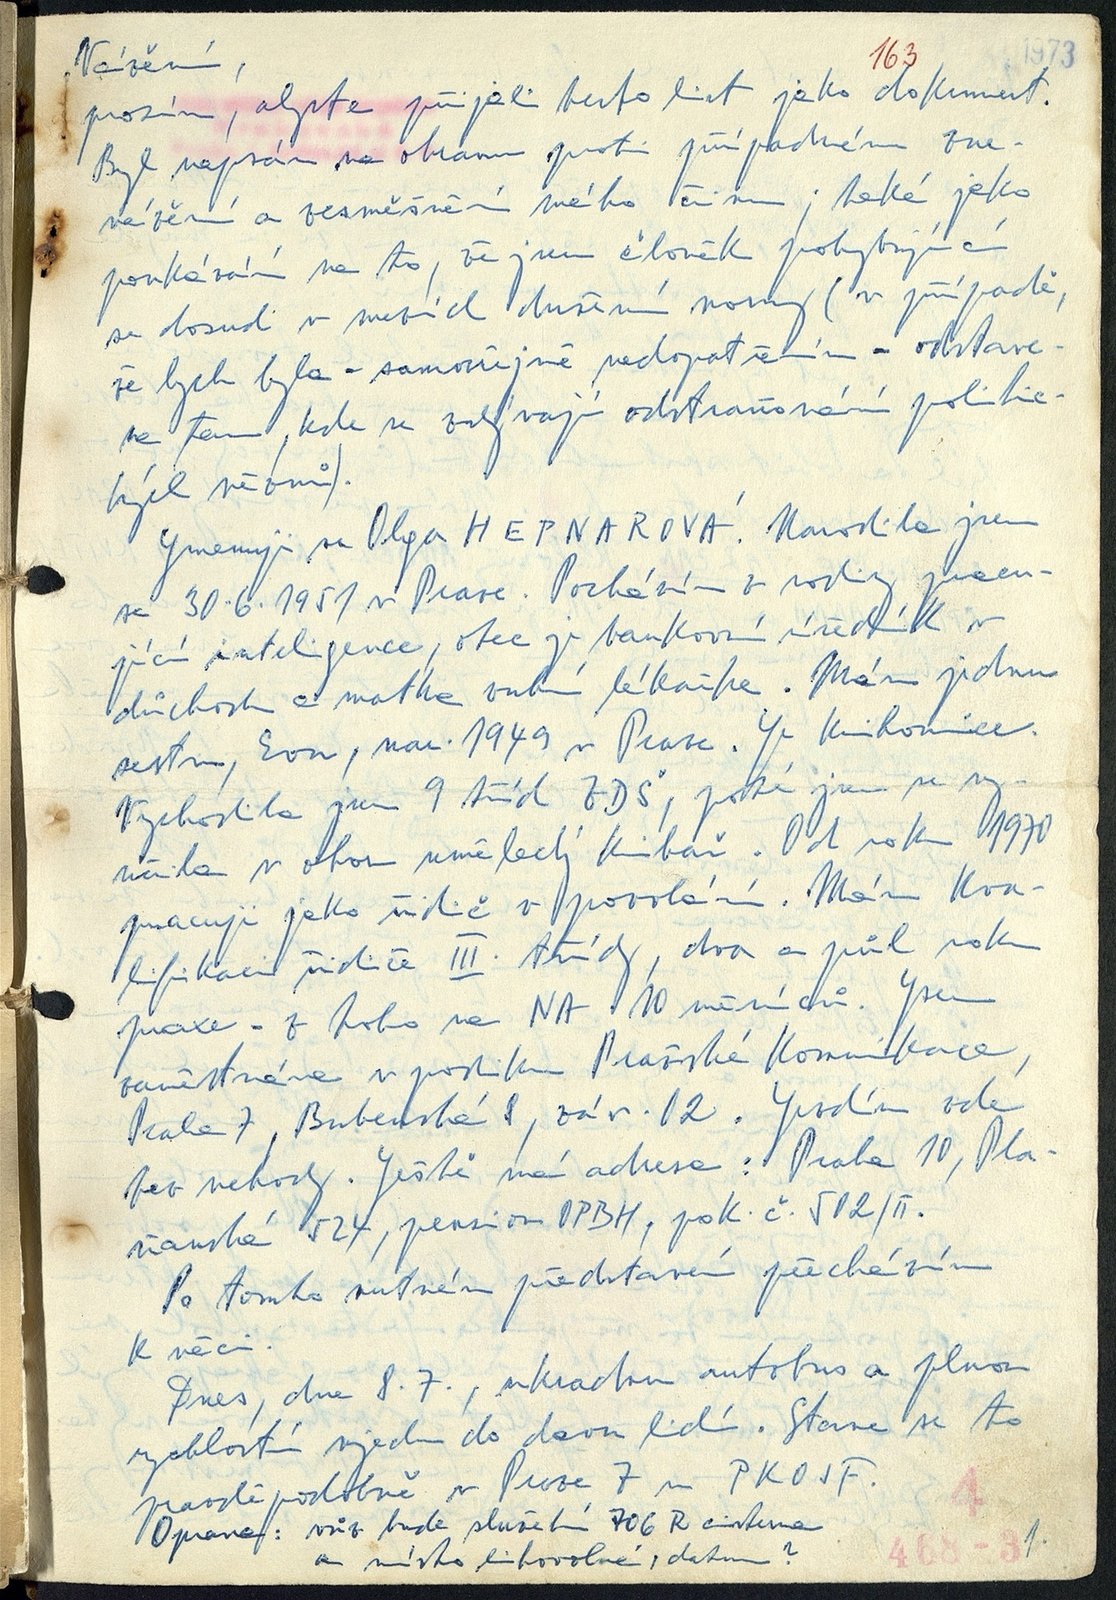 163 1973
Vážení,
prosím, abyste přijali tento list jako dokument.
Byl napsán na obranu proti případnému zne-
vážení a zesměšnění mého činu; také jako
poukázání na to, že jsem člověk pohybující
se dosud v mezích duševní normy (v případě,
že bych byla - samozřejmě nedopatřením - odstave-
na tam, kde se zabývají odstraňování politic-
kých vězňů).
Jmenuji se Olga HEPNAROVÁ. Narodila jsem
se 30.6.1951 v Praze. Pocházím z rodiny pracu-
jící inteligence, otec je bankovní úředník v
důchodu a matka zubní lékařka. Mám jednu
sestru, Evu, nar. 1949 v Praze. Je knihovnice.
Vychodila jsem 9 tříd ZDŠ, poté jsem se vy-
učila v oboru umělecký knihař. Od roku 1970
pracuji jako řidič z povolání. Mám kva-
lifikaci řidiče III. třídy, dva a půl roku
praxe - z toho na NA 10 měsíců. Jsem
zaměstnána v podniku Pražské komunikace,
Praha 7, Bubenská 8, záv. 02. Jezdím zde
bez nehody. Ještě má adresa: Praha 10, Pla-
ňanská 524, pension OPBH, pok. č. 502/II.
Po tomto nutném představení přecházím
k věci.
Dnes, dne 8.7., ukradnu autobus a plnou
rychlostí vjedu do davu lidí. Stane se to
pravděpodobně v Praze 7 u PKOJF.
Oprava: vůz bude služební 706 R cisterna
a místo libovolné, datum?
4
468-3 1.